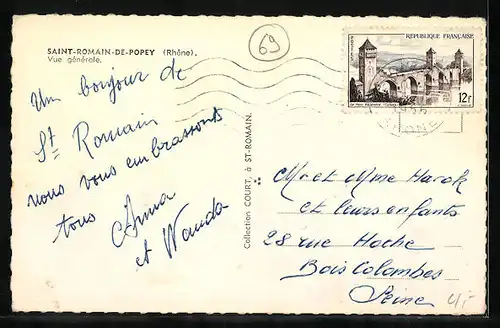 SAINT-ROMAIN-DE-POPEY (Rhône).
Vue générale.
69
RÉPUBLIQUE FRANÇAISE
12F
Un bonjour de
St Romain
nous vous embrassons
tous Anna
et Wanda
Collection COURT, à ST-ROMAIN.
Mr et Mme Harok
et leurs enfants
28 rue Hoche
Bois Colombes
Seine